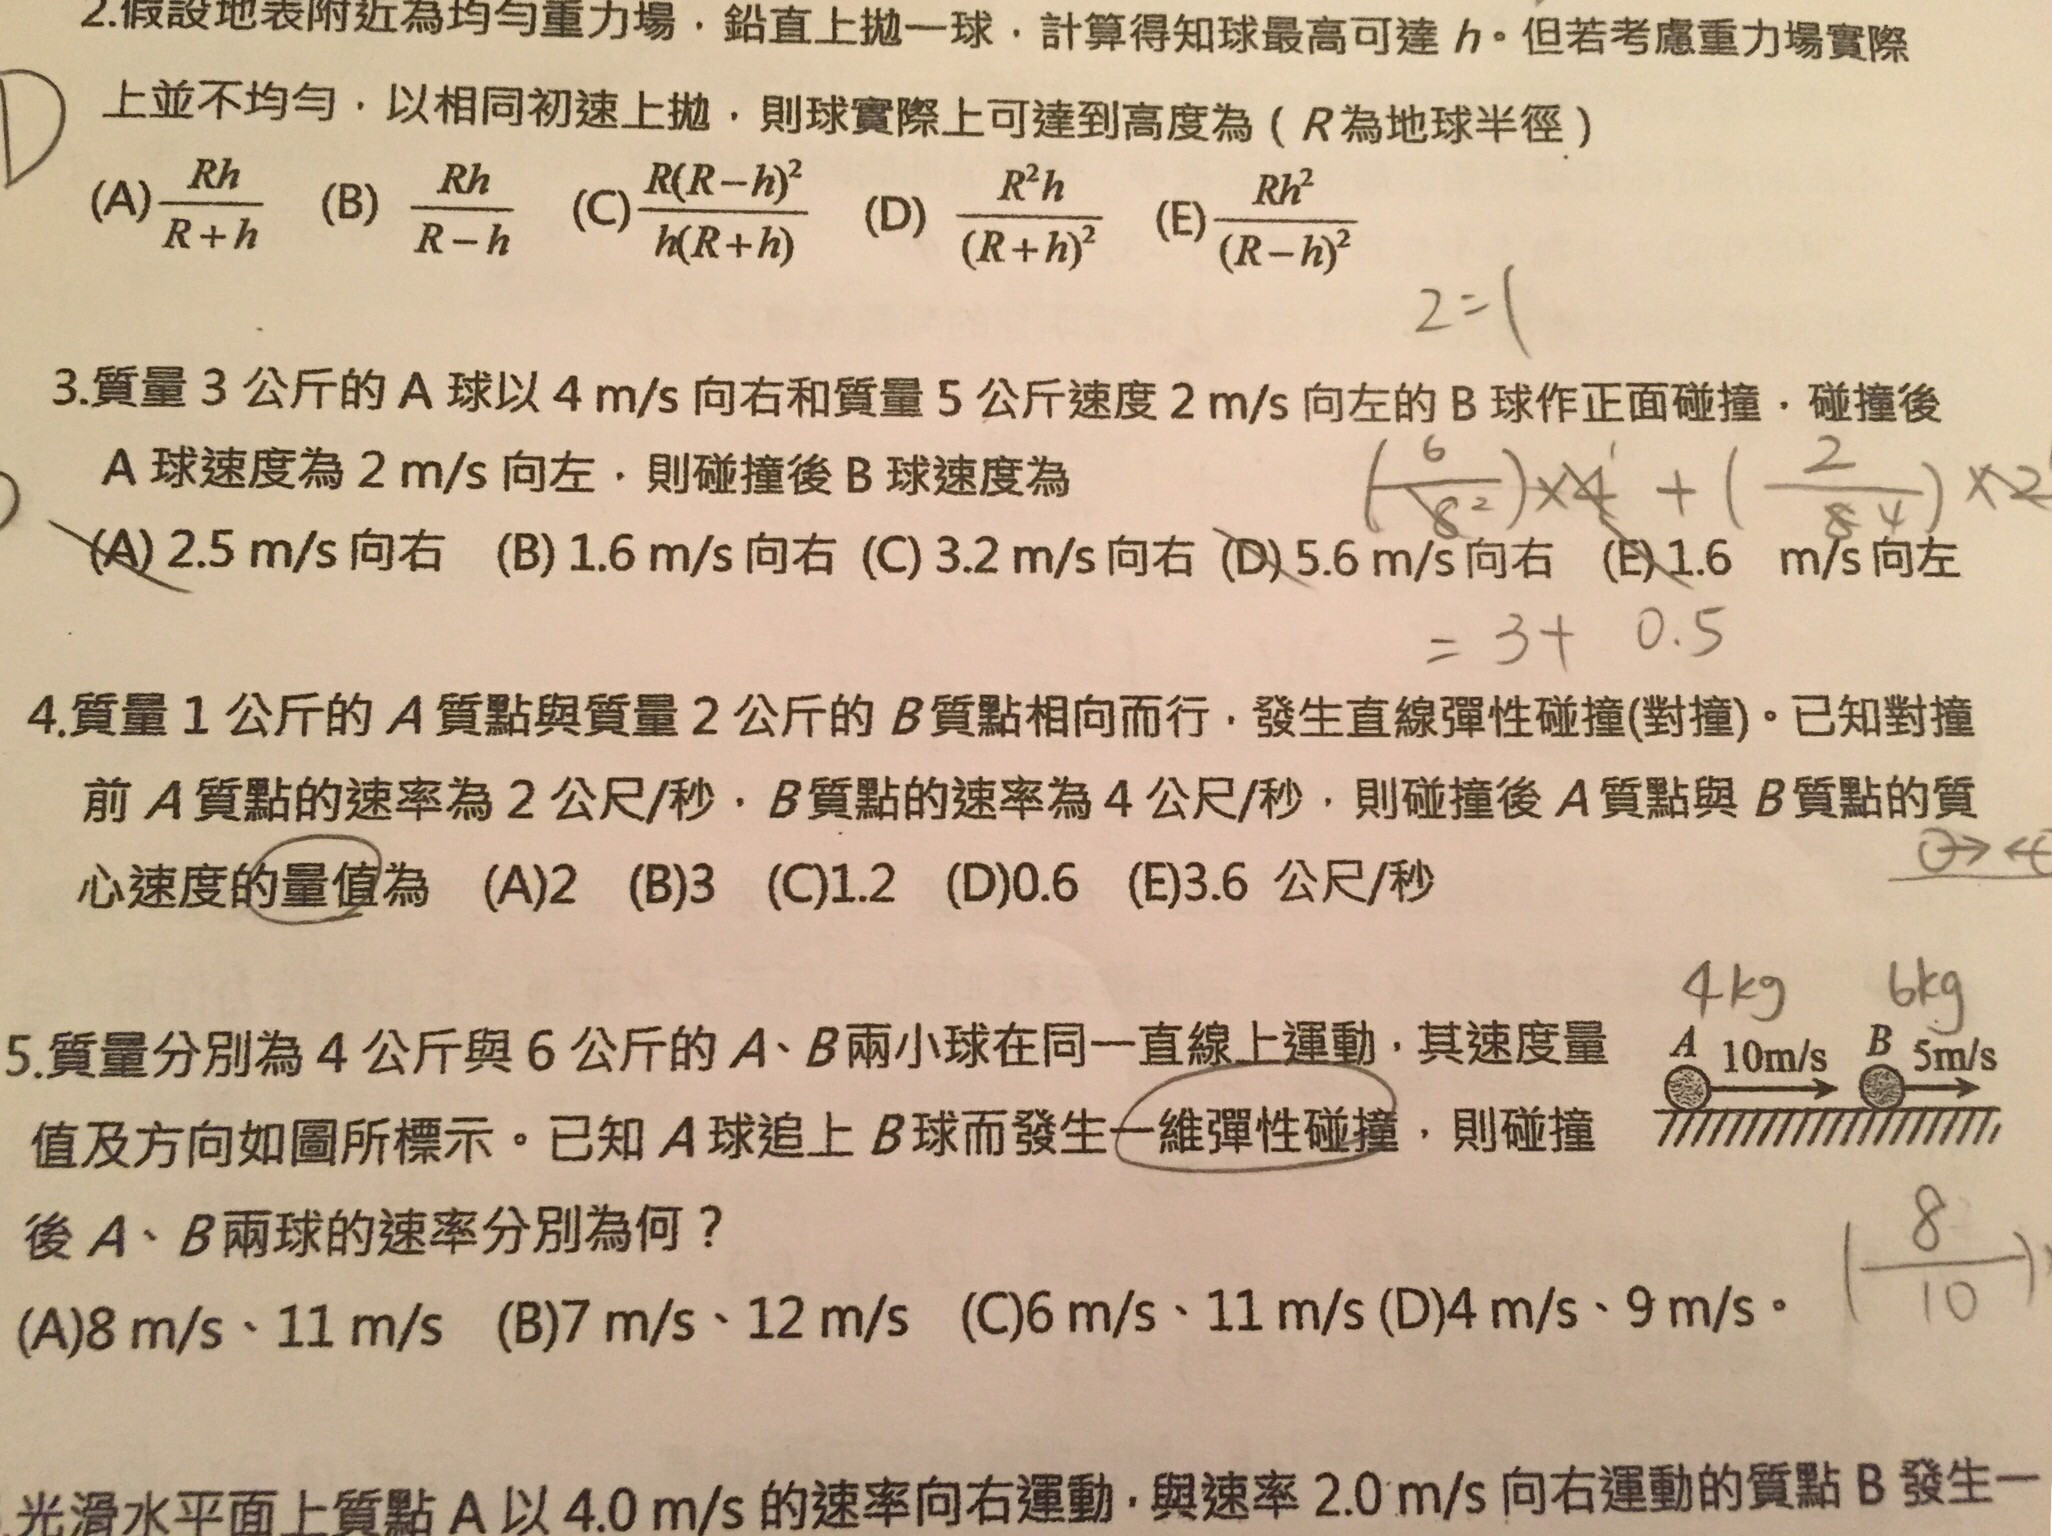 2.假設地表附近為均勻重力場，鉛直上拋一球，計算得知球最高可達 h。但若考慮重力場實際
上並不均勻，以相同初速上拋，則球實際上可達到高度為（R為地球半徑）
D
(A) Rh/(R+h) (B) Rh/(R−h) (C) R(R−h)²/h(R+h) (D) R²h/(R+h)² (E) Rh²/(R−h)²
2=(
3.質量 3 公斤的 A 球以 4 m/s 向右和質量 5 公斤速度 2 m/s 向左的 B 球作正面碰撞，碰撞後
A 球速度為 2 m/s 向左，則碰撞後 B 球速度為
(6/8 2)×4 1 + (2/8 4)×2
(A) 2.5 m/s 向右 (B) 1.6 m/s 向右 (C) 3.2 m/s 向右 (D) 5.6 m/s 向右 (E) 1.6 m/s 向左
= 3+ 0.5
4.質量 1 公斤的 A 質點與質量 2 公斤的 B 質點相向而行，發生直線彈性碰撞(對撞)。已知對撞
前 A 質點的速率為 2 公尺/秒，B 質點的速率為 4 公尺/秒，則碰撞後 A 質點與 B 質點的質
心速度的量值為 (A)2 (B)3 (C)1.2 (D)0.6 (E)3.6 公尺/秒
4kg 6kg
5.質量分別為 4 公斤與 6 公斤的 A、B 兩小球在同一直線上運動，其速度量
A 10m/s B 5m/s
值及方向如圖所標示。已知 A 球追上 B 球而發生一維彈性碰撞，則碰撞
後 A、B 兩球的速率分別為何？
(8/10)
(A)8 m/s、11 m/s (B)7 m/s、12 m/s (C)6 m/s、11 m/s (D)4 m/s、9 m/s。
光滑水平面上質點 A 以 4.0 m/s 的速率向右運動，與速率 2.0 m/s 向右運動的質點 B 發生一